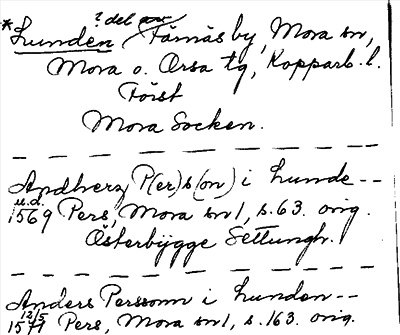 ? del av
*Lunden Färnäs by, Mora sn,
Mora o. Orsa tg, Kopparb. l.
Först
Mora Socken.
Andherz P(er)s(on) i Lunde --
u.d.
1569 Pers, Mora sn 1, s. 63. orig.
Österbygge Settungh.
Anders Perssonn i Lunden --
12/5
1571 Pers, Mora sn 1, s. 163. orig.